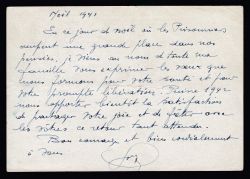 Noël 1941
En ce jour de Noël où les Prisonniers
occupent une grande place dans nos
pensées, je viens au nom de toute ma
famille vous exprimer les vœux que
nous formons pour votre santé et pour
votre prompte libération. Puisse 1942
nous apporter bientôt la satisfaction
de partager votre joie et de fêter avec
les vôtres ce retour tant attendu.
Bon courage et bien cordialement
à vous